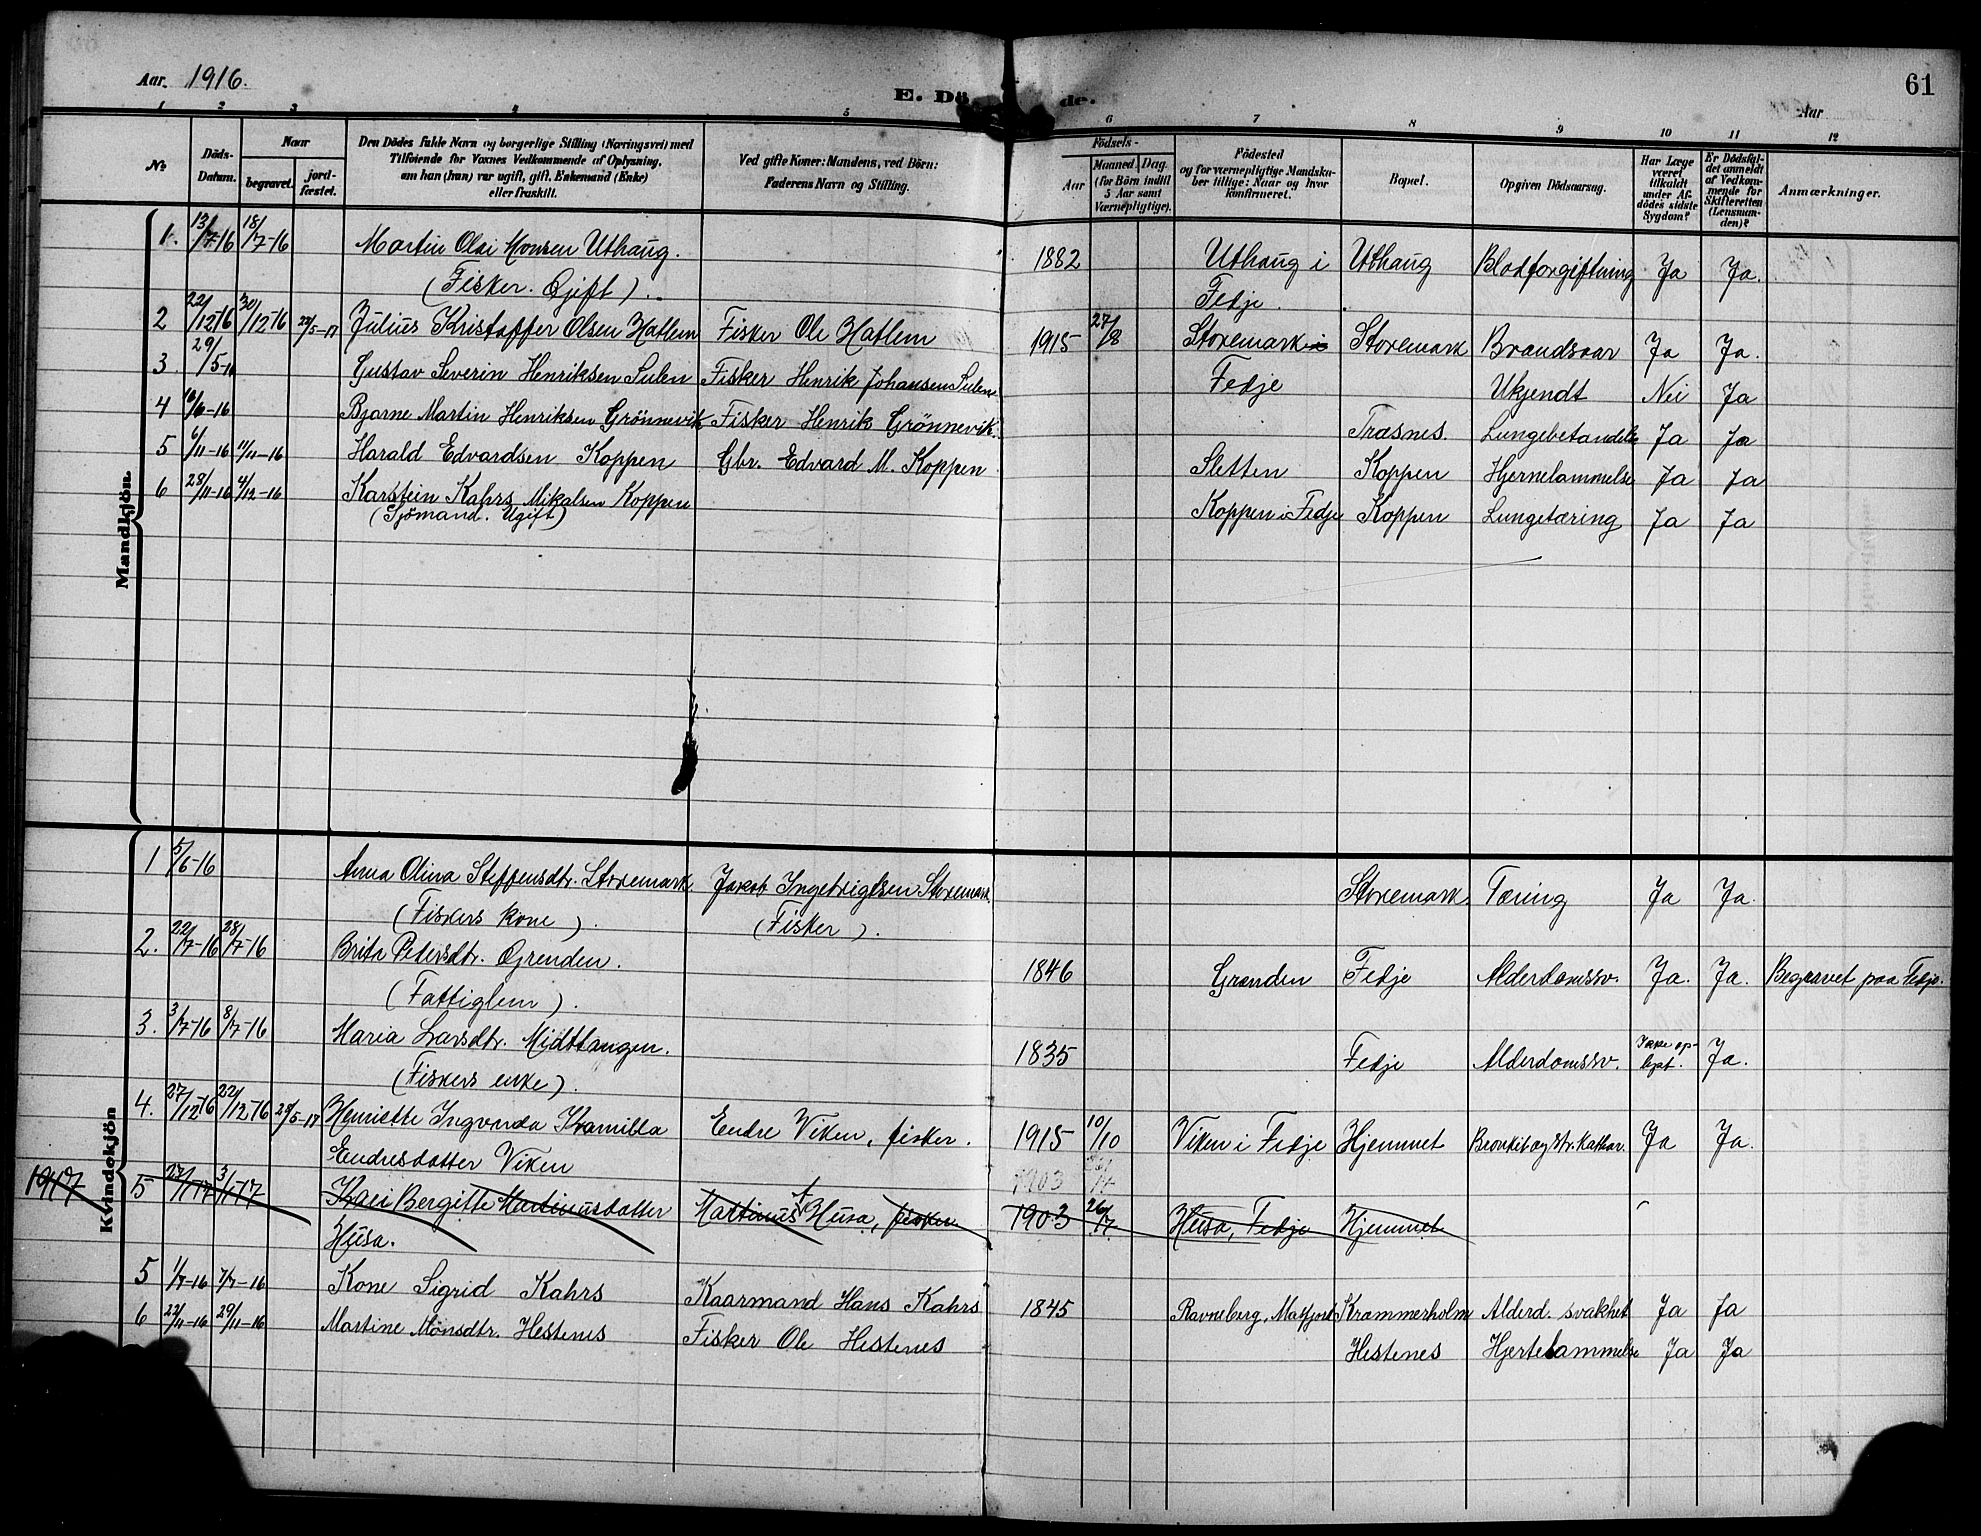 Aar. 1916.
E. Dö de.
Aar
61
1 2 3 4 5 6 7 8 9 10 11 12
No.
Döds-Datum.
Naar
begravet.
jord-fæstet.
Den Dödes fulde Navn og borgerlige Stilling (Næringsvei) med
Tilföiende for Voxnes Vedkommende af Oplysning,
om han (hun) var ugift, gift, Enkemand (Enke)
eller fraskilt.
Ved gifte Koner: Mandens, ved Börn:
Faderens Navn og Stilling.
Födsels-
Aar
Maaned. Dag.
(for Börn indtil
5 Aar samt
Værnepligtige).
Födested
og for værnepligtige Mandska-
ber tillige: Naar og hvor
konfirmeret.
Bopæl.
Opgiven Dödsaarsag.
Har Læge
været
tilkaldt
under Af-
dödes sidste
Sygdom?
Er Dödsfal-
det anmeldt
af Vedkom-
mende for
Skifteretten
(Lensman-
den)?
Anmærkninger.
Mandkjön
1. 13/7-16 18/7-16 Martin Olai Monsen Uthaug. 1882 Uthaug i Uthaug Blodforgiftning Ja Ja.
(Fisker. Gift). Fedje.
2 22/12-16 30/12-16 28/5-17 Julius Kristoffer Olsen Hatlem Fisker Ole Hatlem 1915 27/8 Storemark Storemark Brandsaar Ja Ja.
3. 29/5-16 Gustav Severin Henriksen Sulen Fisker Henrik Johansen Sulen Fedje Ukjendt Nei Ja
4 16/6-16 Bjarne Martin Henriksen Grönnevik Fisker Henrik Grönnevik. Træsnes. Lungebetændelse Ja Ja
5 6/11-16 11/11-16 Harald Edvardsen Koppen Gbr. Edvard M. Koppen Sletten Koppen Hjernelammelse Ja Ja
6 28/11-16 4/12-16 Karstein Kahrs Mikalsen Koppen Koppen i Fedje Koppen Lungetæring Ja Ja
(Sjömand. Ugift)
Kvindekjön
1 5/6-16 Anna Olina Steffensdtr. Storemark Jakob Ingebrigtsen Storemark. Storemark Tæring Ja Ja.
(Fiskers kone). (Fisker).
2. 22/7-16 28/7-16 Brita Petersdtr. Grenden. 1846 Grenden Fedje Alderdomssv. Ja. Ja. Begravet paa Fedje.
(Fattiglem).
3. 3/7-16 8/7-16 Maria Larsdtr. Midttangen. 1835 Fedje Alderdomssv. Ikke op-lyst. Ja.
(Fiskers enke).
4. 27/12-16 22/12-16 28/5-17 Henriette Ingvarda Kamilla Endre Viken, fisker. 1915 10/10 Viken i Fedje Hjemmet Bronkit og str. Kathar. Ja Ja.
Endresdatter Viken
1903
1917 5 27/1-17 3/-17 Kari Bergitte Martinusdatter Martinus Husa, fisker 1903 26/7. Husa, Fedje Hjemmet
Husa.
5 1/7-16 7/7-16 Kone Sigrid Kahrs Kaarmand Hans Kahrs 1845 Ravneberg, Masfjord Krammerholm Alderd. svakhet Ja Ja
6 22/11-16 29/11-16 Martine Monsdtr. Hestenes Fisker Ole Hestenes Hestenes Hjertelammelse Ja Ja